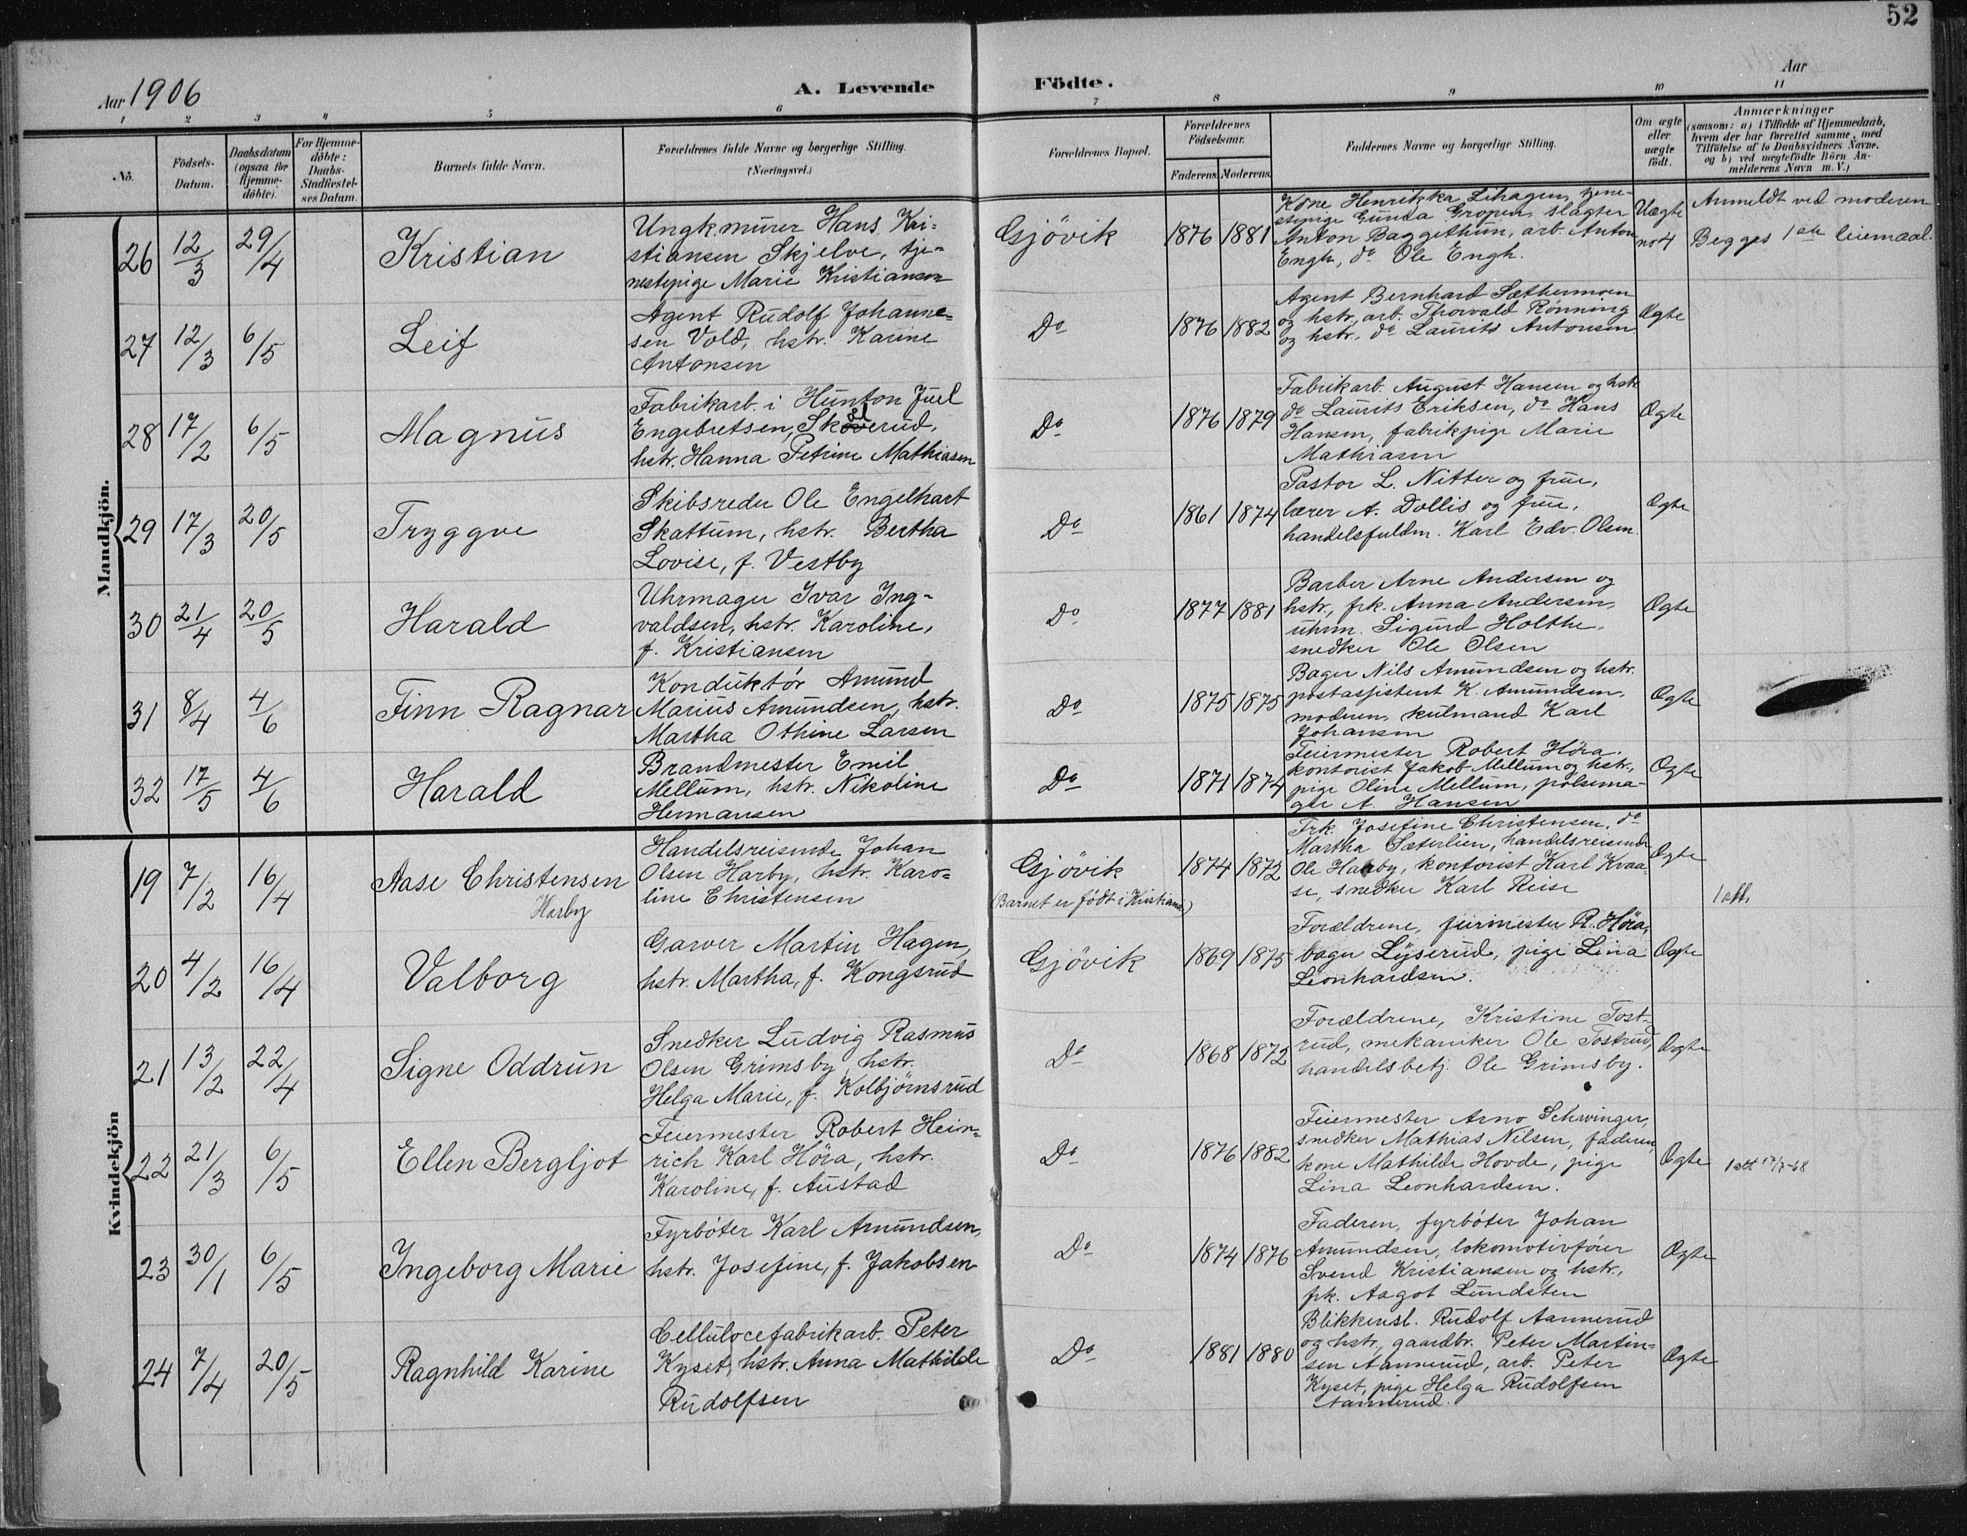 52
Aar 1906
A. Levende
Födte.
Aar
1 2 3 4 5 6 7 8 9 10 11
No.
Födsels-
Datum.
Daabsdatum
(ogsaa for
Hjemme-
döbte).
For Hjemme-
döbte:
Daabs-
Stadfæstel-
ses Datum.
Barnets fulde Navn.
Forældrenes fulde Navne og borgerlige Stilling.
(Næringsvei.)
Forældrenes Bopæl.
Forældrenes
Födselsaar.
Faderens. Moderens.
Faddernes Navne og borgerlige Stilling.
Om ægte
eller
uægte
födt.
Anmærkninger
(saasom: a) i Tilfælde af Hjemmedaab,
hvem der har forrettet samme, med
Tilföielse af to Daabsvidners Navne,
og b) ved uægtefödte Börn An-
melderens Navn m. V.)
Mandkjön.
26 12/3 29/4 Kristian
Ungk. murer Hans Kri-
stiansen Skjelve, tje-
nestepige Marie Kristiansen
Gjövik 1876 1881
Kone Henrikka Lihagen, tjene-
stepige Gunda Gropen, slagter
Anton Baggethun, arb. Anton
Engh, do Ole Engh.
Uægte
no 4
Anmeldt ved moderen
Begges 1ste leiemaal.
27 12/3 6/5 Leif
Agent Rudolf Johanne-
sen Vold, hstr. Karine
Antonsen
Do 1876 1882
Agent Bernhard Sæthermoen
og hstr, arb. Thorvald Rönning
og hstr, do Laurits Antonsen
Ægte
28 17/2 6/5 Magnus
Fabrikarb. i Hunton Juel
Engebretsen,
hstr. Hanna Petrine Mathiasen
Do 1876 1879
Fabrikarb. August Hansen og hstr
do Laurits Eriksen, do Hans
Hansen, fabrikpige Marie
Mathiasen
Ægte
29 17/3 20/5 Tryggve
Skibsreder Ole Engelhart
Skattum, hstr. Bertha
Lovise, f. Vestby
Do 1861 1874
Pastor L. Nitter og frue,
lærer A. Döllis og frue,
handelsfuldm. Karl Edv. Olsen.
Ægte
30 21/4 20/5 Harald
Uhrmager Ivar Ing-
valdsen, hstr. Karoline,
f. Kristiansen
Do 1877 1881
Barber Arne Andersen og
hstr., frk. Anna Andersen,
uhrm. Sigurd Holthe,
snedker Ole Olsen
Ægte
31 8/4 4/6 Finn Ragnar
Konduktör Amund
Marius Amundsen, hstr.
Martha Othine Larsen
Do 1875 1875
Bager Nils Amundsen og hstr.
postassistent K. Amundsen,
moderen, kulmand Karl
Johansen
Ægte
32 17/5 4/6 Harald
Brandmester Emil
Mellum, hstr. Nikoline
Hermansen
Do 1871 1874
Feiermester Robert Höra,
kontorist Jakob Mellum og hstr.,
pige Oline Mellum, pölsema-
gte A. Hansen
Ægte
Kvindekjön
19 7/2 16/4 Aase Christensen
Harby
Handelsreisende Johan
Olsen Harby, hstr. Karo-
line Christensen
Gjövik
(Barnet er födt i Kristiania)
1874 1872
Frk. Josefine Christensen, do
Martha Sæterlien, handelsreisende
Ole Harby, kontorist Karl Kvaa-
se, snedker Karl Reise
Ægte
1 att.
20 4/2 16/4 Valborg
Garver Martin Hagen,
hstr. Martha, f. Kongsrud
Gjövik 1869 1875
Forældrene, feiermester R. Höra,
bager Lyserud, pige Lina
Leonhardsen.
Ægte
21 13/2 22/4 Signe Oddrun
Snedker Ludvig Rasmus
Olsen Grimsby, hstr.
Helga Marie, f. Kolbjörnsrud
Do 1868 1872
Forældrene, Kristine Tost-
rud, mekaniker Ole Tostrud,
handelsbetj. Ole Grimsby.
Ægte
22 21/3 6/5 Ellen Bergljot
Feiermester Robert Hein-
rich Karl Höra, hstr.
Karoline, f. Austad
Do 1876 1882
Feiermester Arno Schwinger,
snedker Mathias Nilsen, faderen,
kone Mathilde Hovde, pige
Lina Leonhardsen.
Ægte
1 att
23 30/1 6/5 Ingeborg Marie
Fyrböter Karl Amundsen,
hstr. Josefine, f. Jakobsen
Do 1874 1876
Faderen, fyrböter Johan
Amundsen, lokomotivförer
Svend Kristiansen og hstr.,
frk. Aagot Lundsten
Ægte
24 7/4 20/5 Ragnhild Karine
Cellulocefabrikarb. Peter
Kyset, hstr. Anna Mathilde
Rudolfsen
Do 1881 1880
Blikkensl. Rudolf Aannerud
og hstr, gaardbr. Peter Martin-
sen Aannerud, arb. Peter
Kyset, pige Helga Rudolfsen
Aannerud.
Ægte